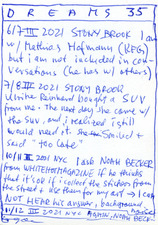 DREAMS 35
6/7 III 2021 STONY BROOK I am
w/ Mathias Hofmann (KFG) but
I am not included in con-
versations (he has w/ others)
7/8 III 2021 STONY BROOK
Reinhard bought a SUV
from me. The next day she came w/
the SUV, and I realized I still
would need it. Smiled +
said "too late"
10/11 III 2021 NYC I ask NOAH BECKER
from WHITEHOTMAGAZINE if he thinks
that it's OK if I collect the stickers from
the street + use them for my art → I can
NOT HEAR his answer, background
11/12 III 2021 NYC AGAIN, NOAH BECK-